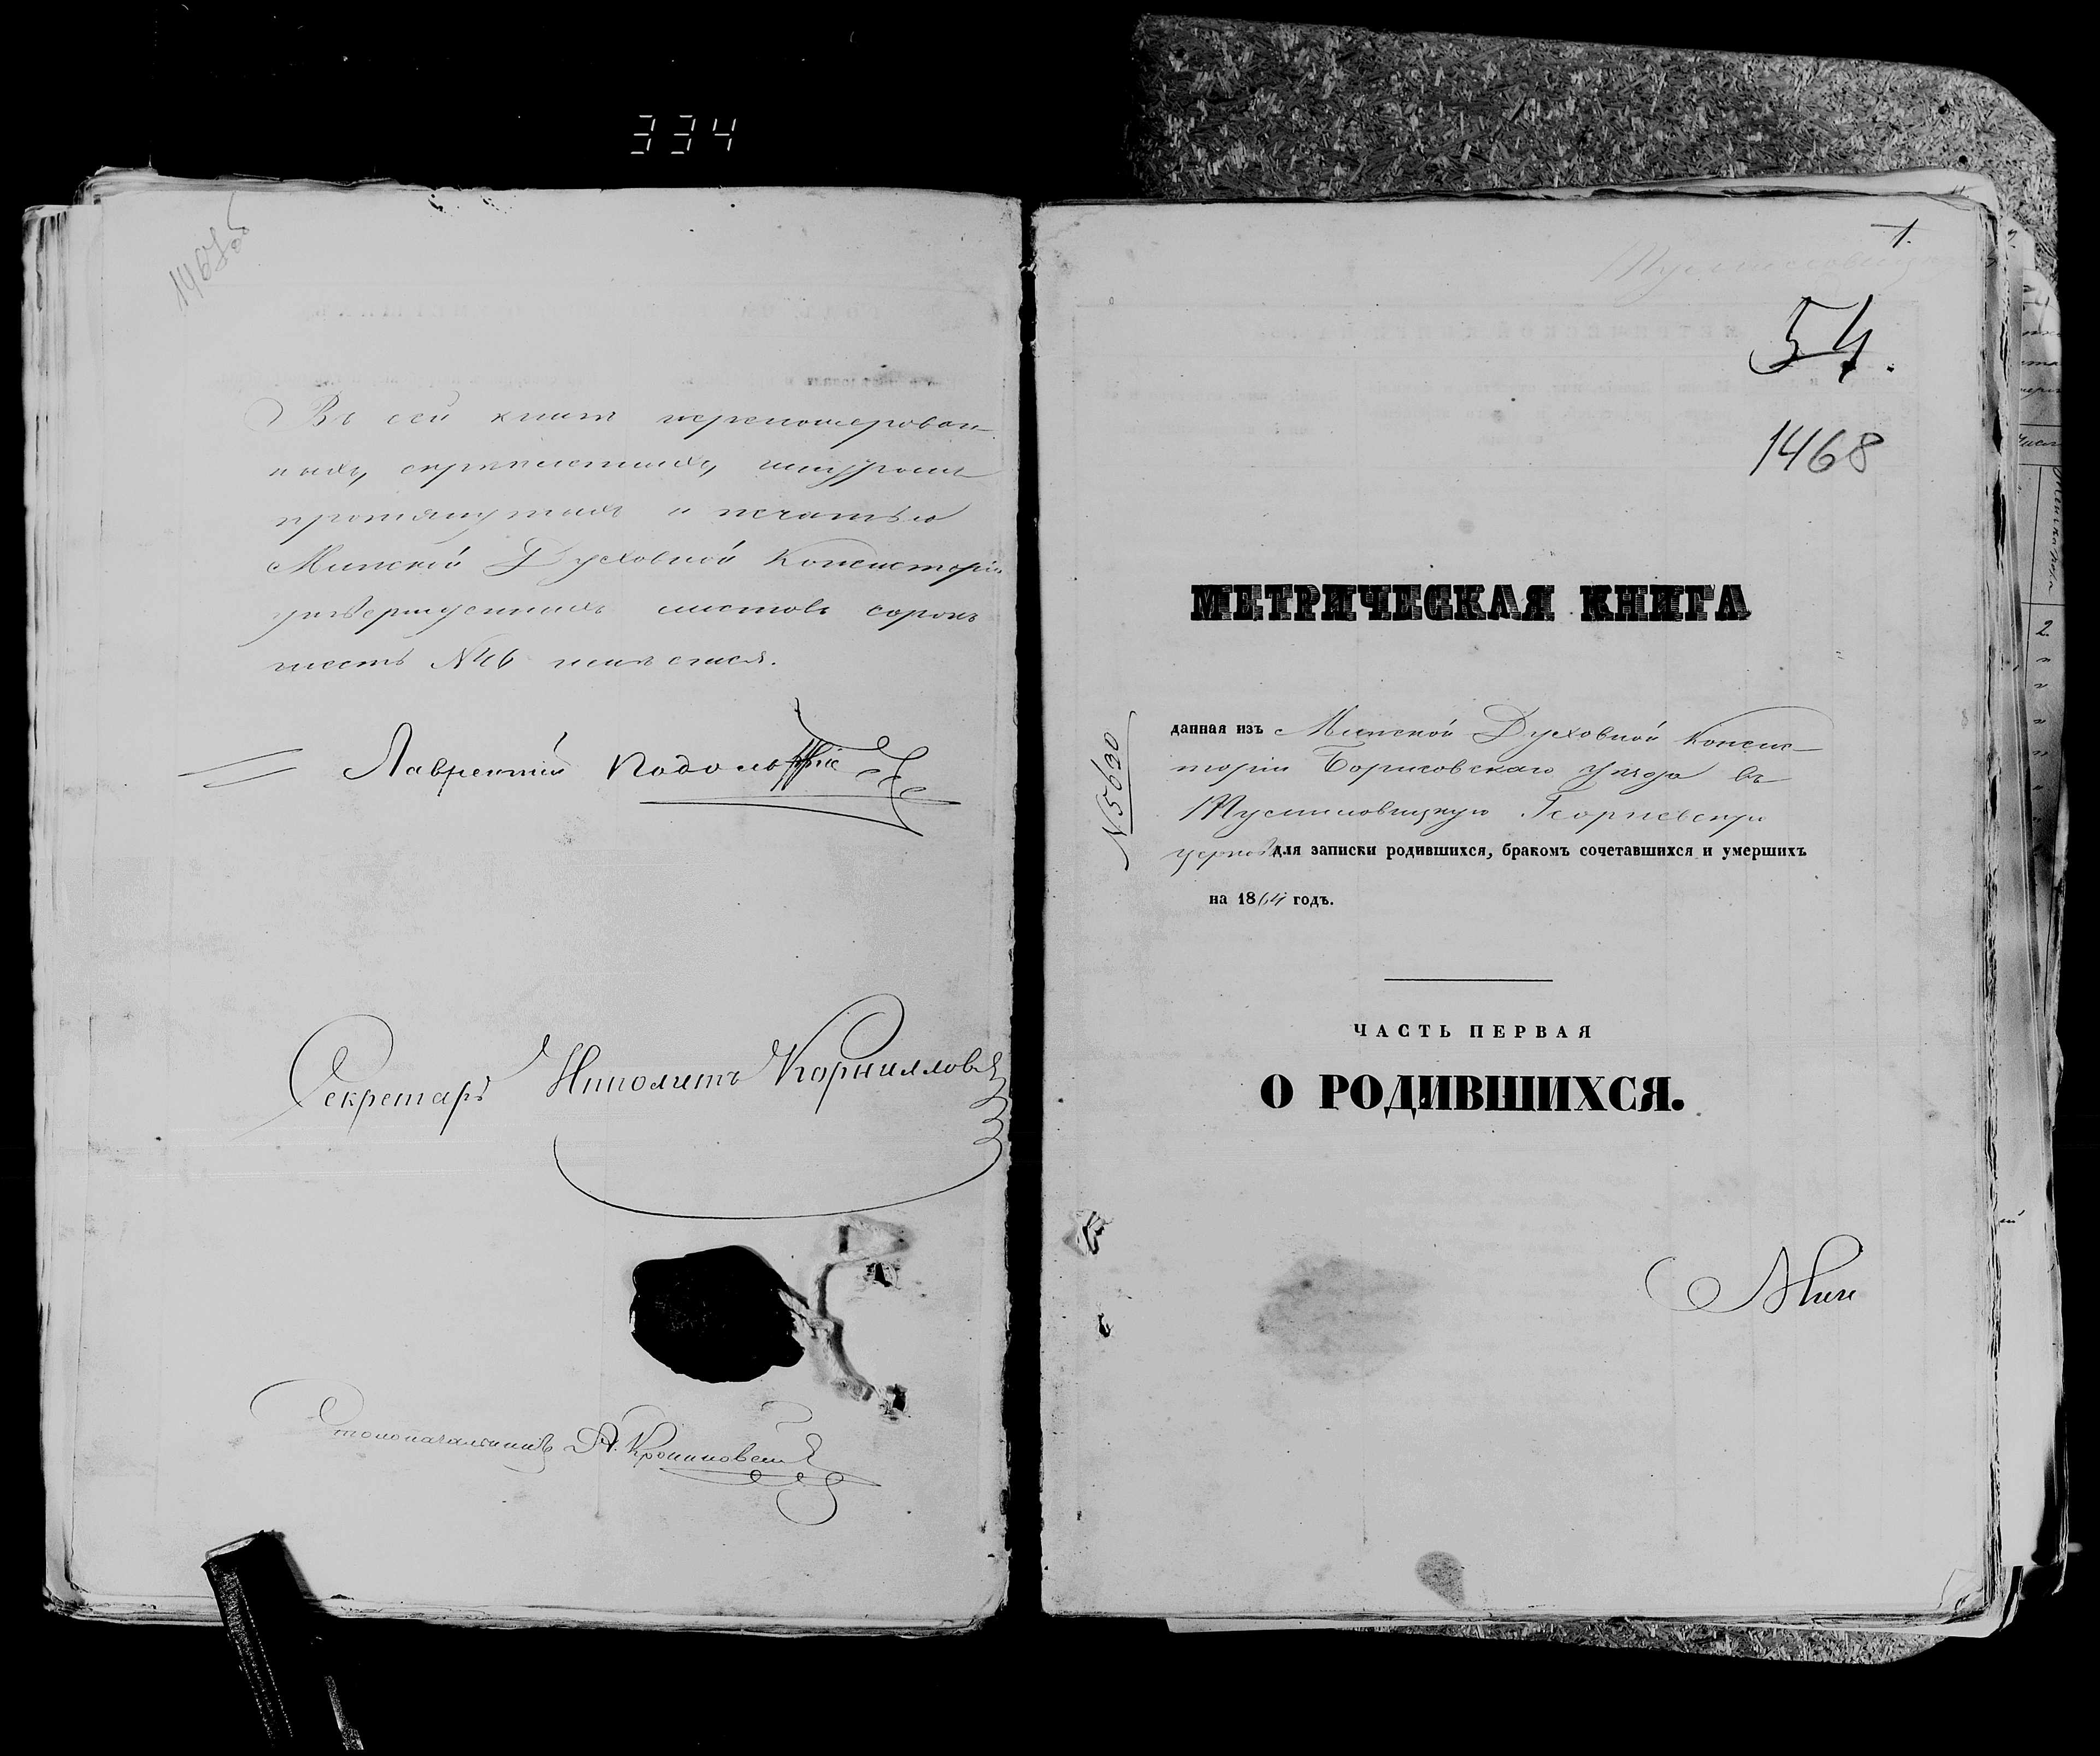 334
1467об
Въ сей книгѣ перенумерован-
ныхъ, скрѣпленныхъ, шнуромъ
протянутыхъ и печатью
Минской Духовной Консисторіи
утвержденныхъ листовъ сорокъ
шесть №46 имѣется.
Лаврентій Подольскій
Секретарь Ипполитъ Корнилловъ
Столоначальникъ А. Крониковскій
1.
54.
1468
МЕТРИЧЕСКАЯ КНИГА
№5630
данная изъ Минской Духовной Консис-
торіи Борисовскаго уѣзда въ
Мстиловицкую Георгіевскую
церковь для записки родившихся, бракомъ сочетавшихся и умершихъ
на 1864 годъ.
ЧАСТЬ ПЕРВАЯ
О РОДИВШИХСЯ.